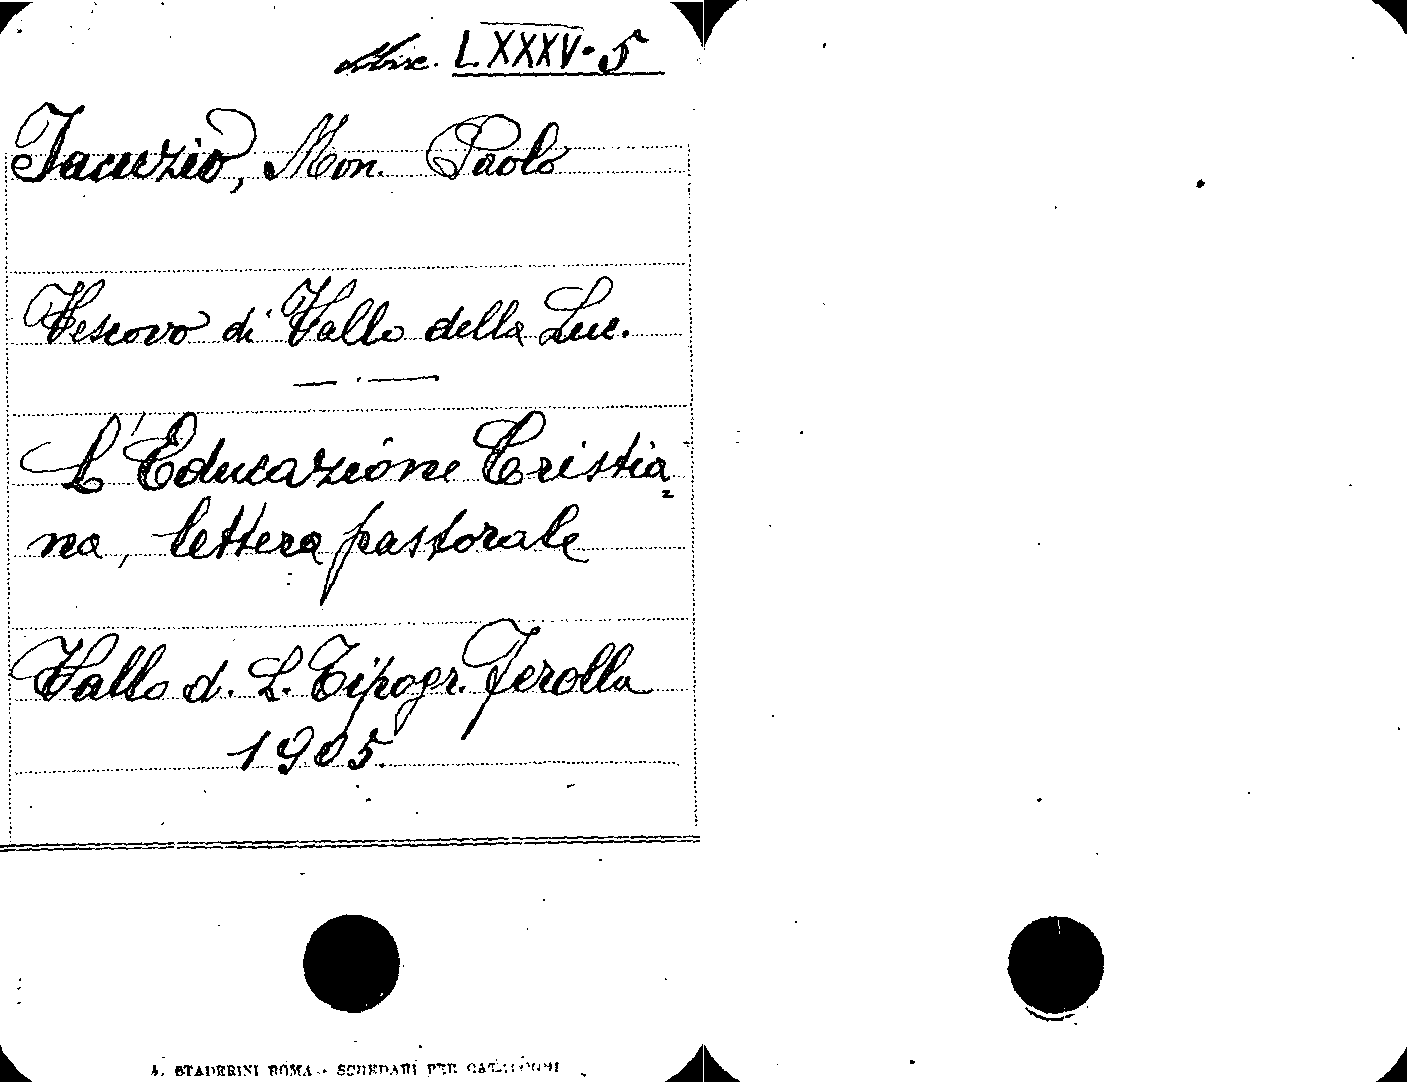 Misc. LXXXV-5
Jacuzio, Mon. Paolo
Vescovo di Vallo della Luc.
L'Educazione Cristia=
na, lettera pastorale
Vallo d. L. Tipogr. Jerolla
1905.
A. STADERINI ROMA - SCHEDARI PER CATALOGHI